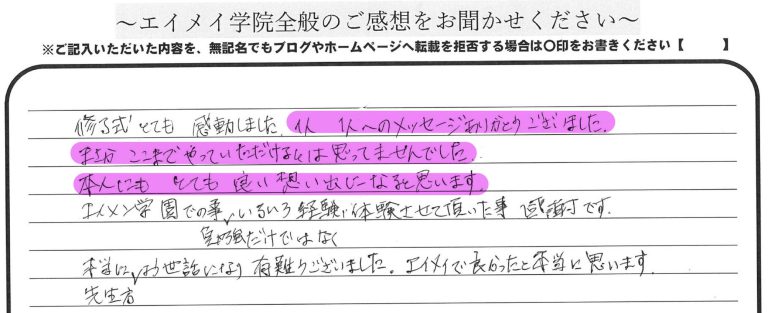 ～エイメイ学院全般のご感想をお聞かせください～
※ご記入いただいた内容を、無記名でもブログやホームページへ転載を拒否する場合は〇印をお書きください【　　】
修了式とても 感動しました。1人 1人へのメッセージありがとうございました。
まさか ここまでやっていただけるとは思ってませんでした。
本人にも とても 良い想い出になると思います。
エイメン学園での事、いろいろ経験、体験させて頂いた事 感謝です。
勉強だけではなく
本当に、お世話になり 有難うございました。エイメイで良かったと本当に思います。
先生方